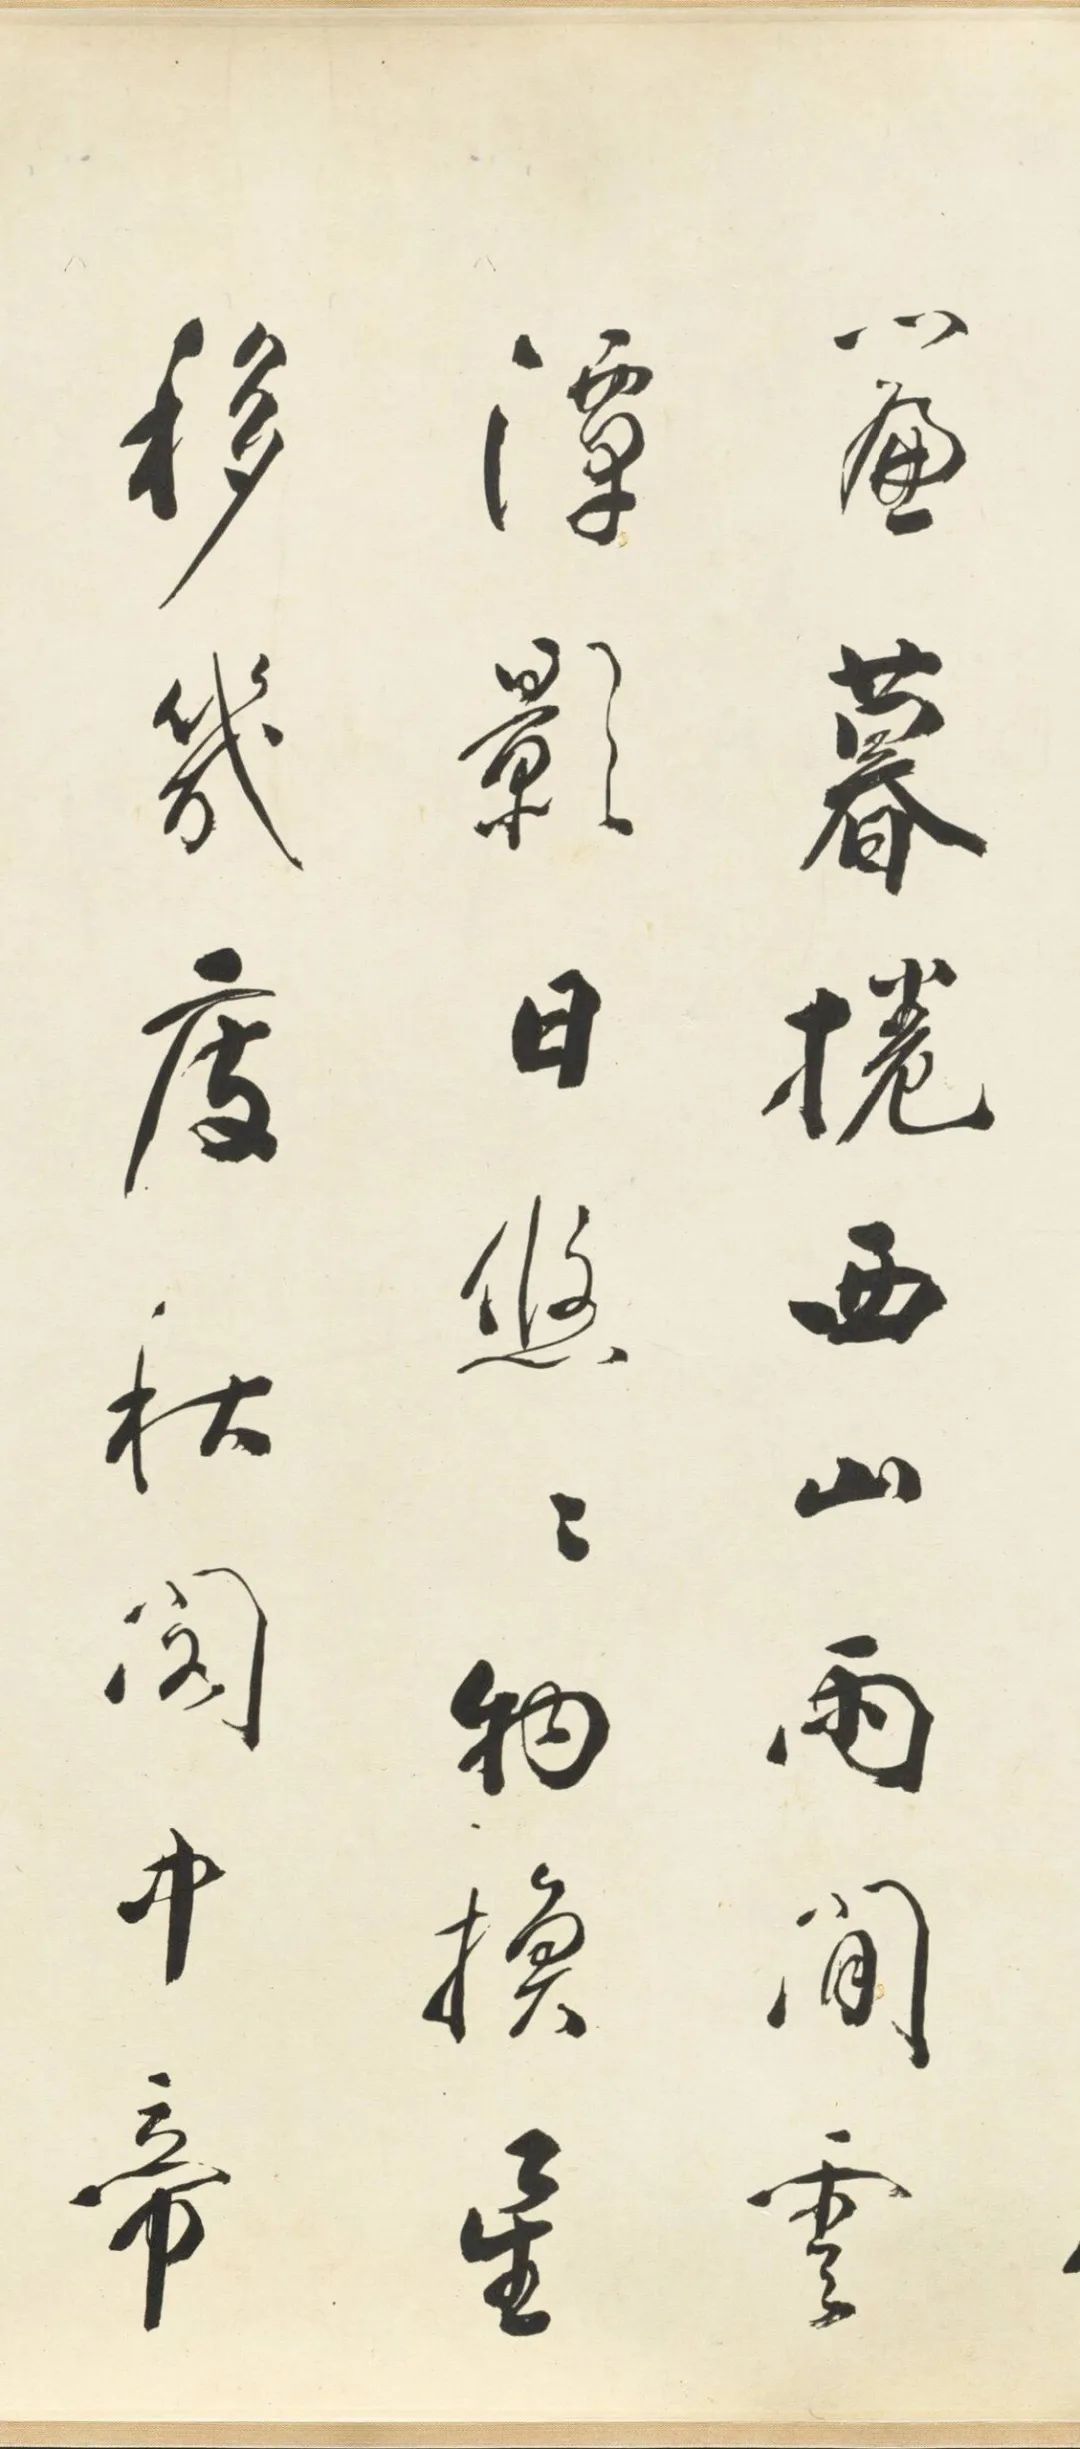 簾暮捲西山雨閒雲
潭影日悠〻物換星
移幾度秋閣中帝